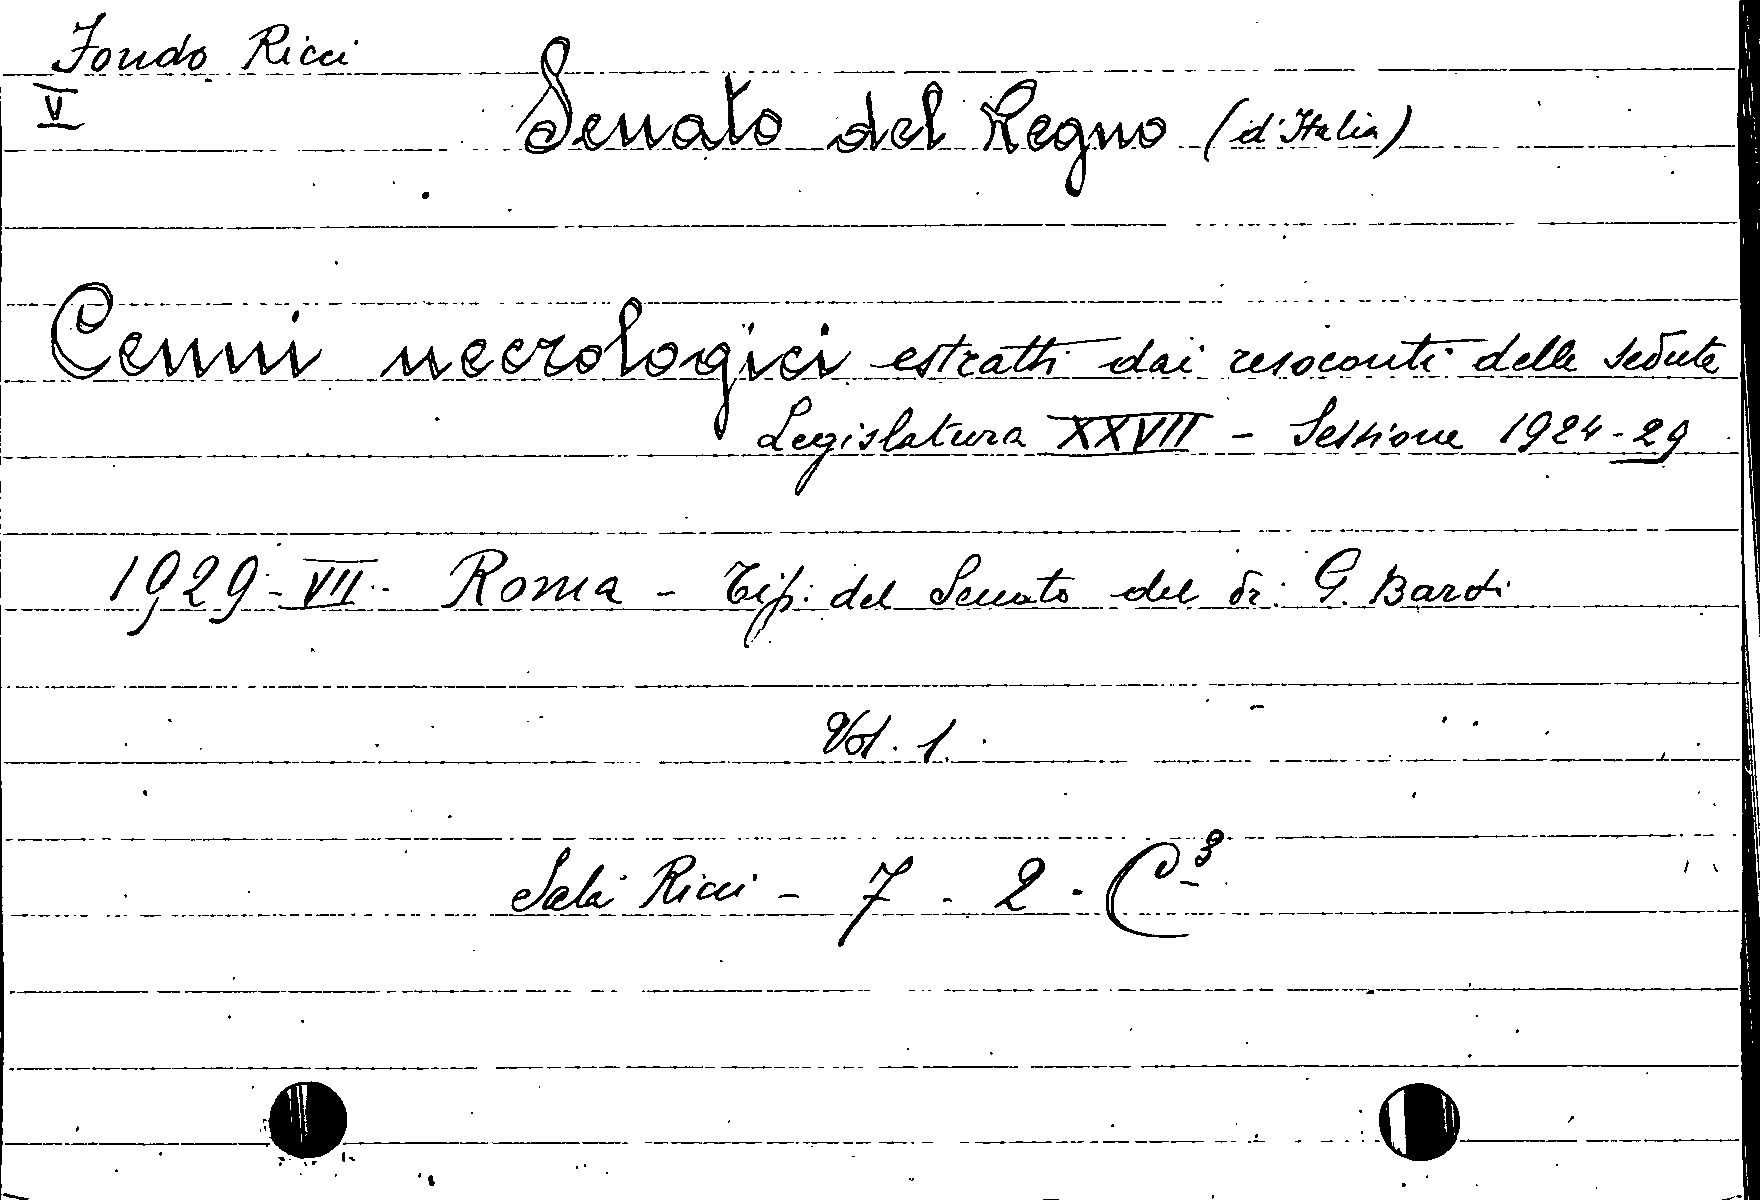 Fondo Ricci
V
Senato del Regno (d'Italia)
Cenni necrologici estratti dai resoconti delle sedute
Legislatura XXVII - Sessione 1924-29
1929-VII- Roma - Tip. del Senato del dr. G. Bardi
Vol. 1.
Sala Ricci - 7 - 2 - C³